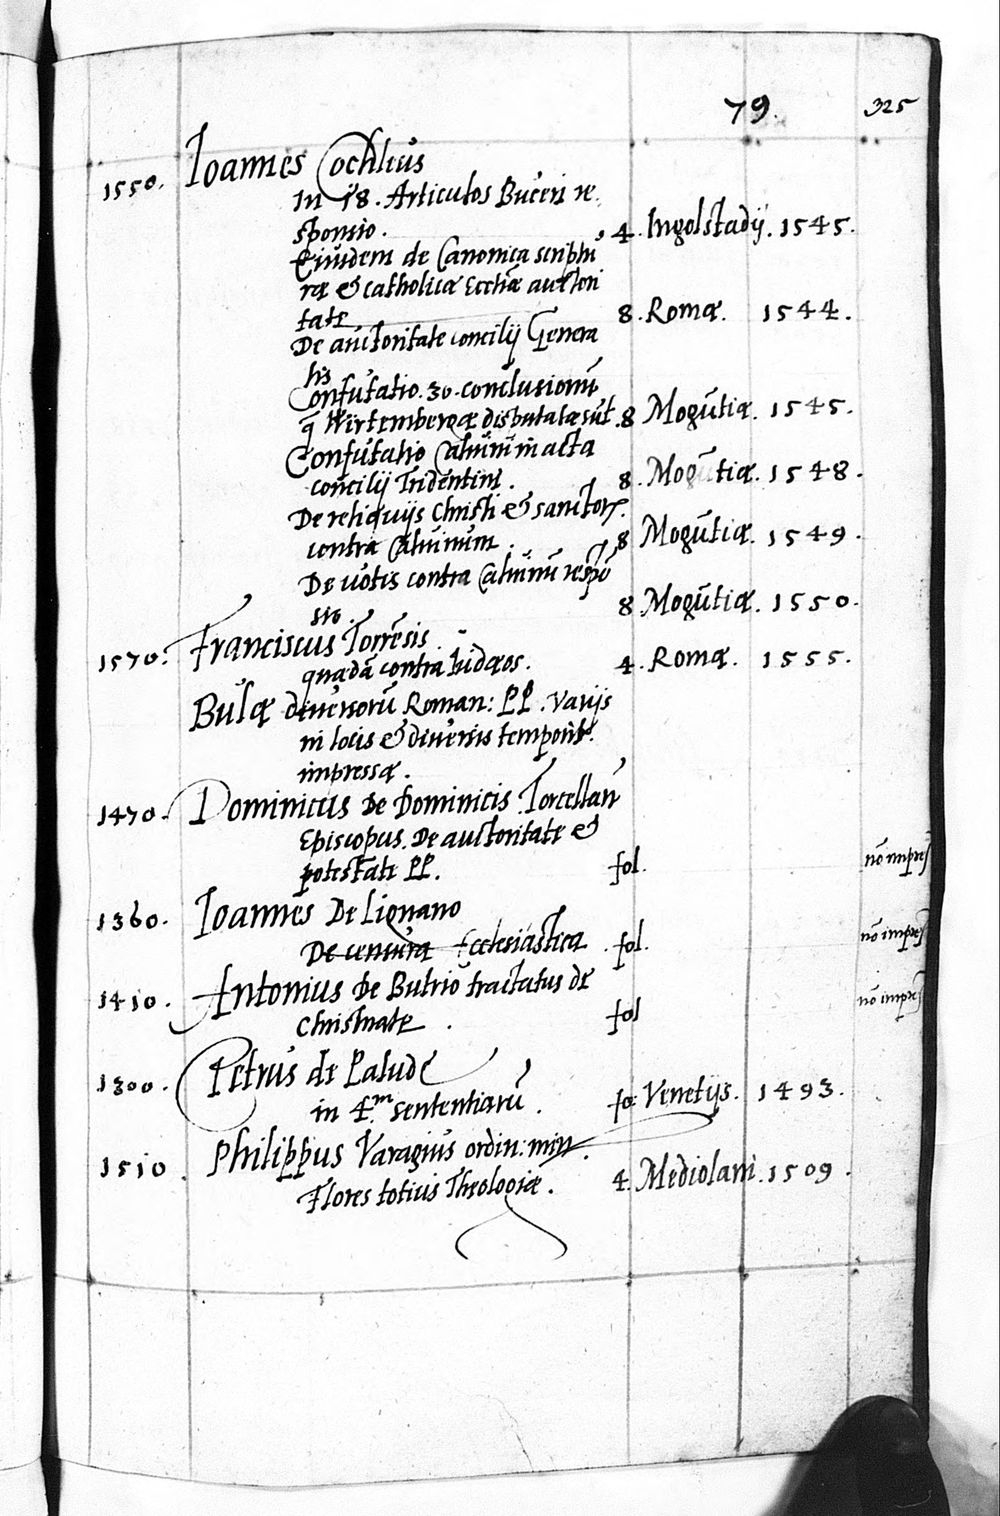 79.
325
1550. Ioannes Cochleus
In 18. Articulos Buceri re
sponsio. 4. Ingolstadij. 1545.
Eiusdem de Canonica scriptu
ræ & catholicæ Eccliæ auctori
tate 8. Romæ. 1544.
De auctoritate concilij Genera
lis
Confutatio. 30. conclusionũ
q̃ Wirtembergæ disputatæ sũt. 8 Mogũtiæ. 1545.
Confutatio Caluini in acta
concilij Tridentini. 8. Mogũtiæ. 1548.
De reliquijs Christi & sanctor.
contra Caluinum. 8 Mogũtiæ. 1549.
De uotis contra Caluinũ respõ
sio. 8. Mogũtiæ. 1550.
1570. Franciscus Torrẽsis.
quædã contra Iudæos. 4. Romæ. 1555.
Bulæ diuersorũ Roman: PP. varijs
in locis & diuersis temporib.
impressæ.
1470. Dominicus De Dominicis Torcellan
Episcopus. De auctoritate &
potestate PP. fol. nõ impres
1360. Ioannes De Lignano
De censura Ecclesiastica fol. nõ impres
1410. Antonius De Butrio tractatus de
Chrismate. fol nõ impres
1300. Petrus de Palude
in 4.m sententiarũ. fo. Venetijs. 1493.
1510. Philippus Varagius ordin: min.
Flores totius Theologiæ. 4. Mediolani. 1509.